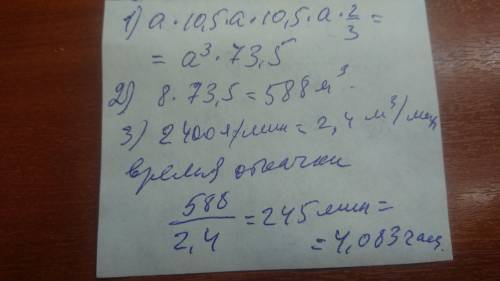 1) a · 10,5a · 10,5 · a · 2/3 =
= a³ · 73,5
2) 8 · 73,5 = 588 м³.
3) 2400л/мин = 2,4 м³/мин
время откачки
588/2,4 = 245 мин =
= 4,083 час.